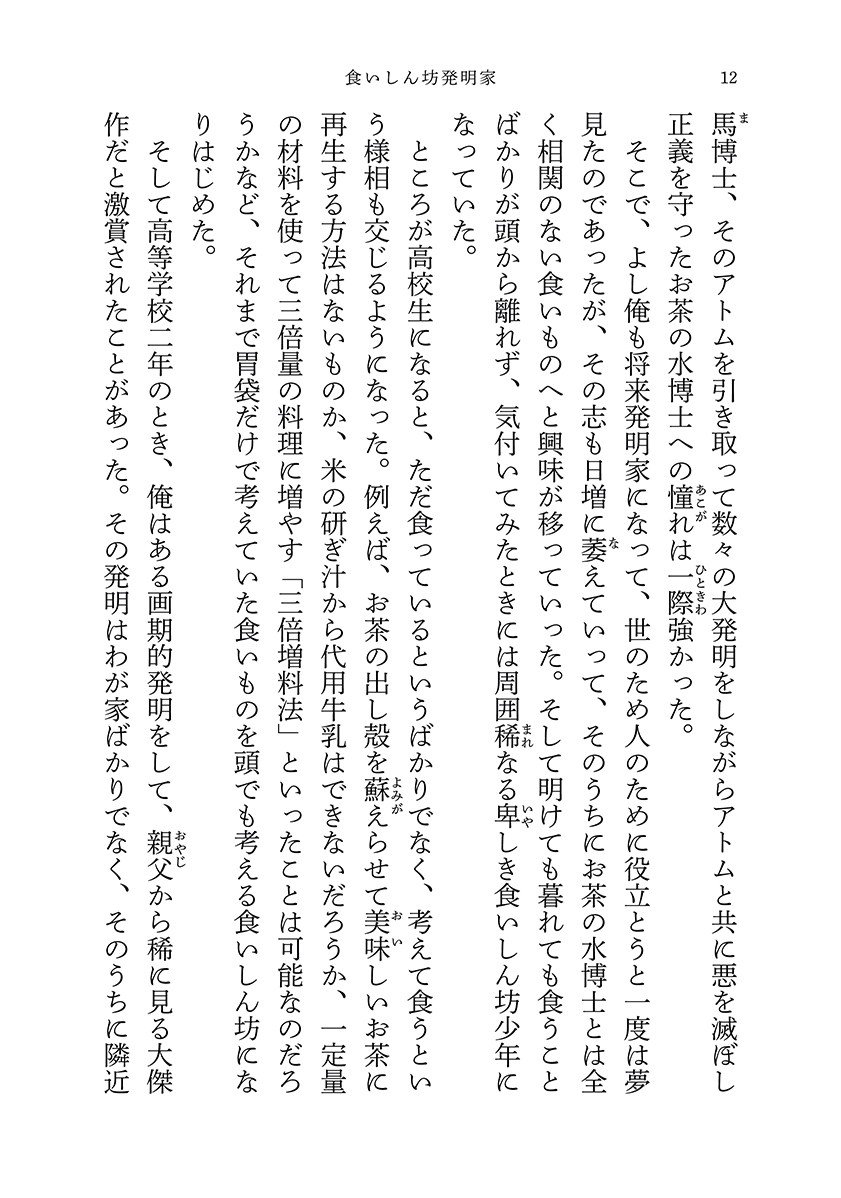 食いしん坊発明家
12
馬博士、そのアトムを引き取って数々の大発明をしながらアトムと共に悪を滅ぼし
正義を守ったお茶の水博士への憧れは一際強かった。
そこで、よし俺も将来発明家になって、世のため人のために役立とうと一度は夢
見たのであったが、その志も日増に萎えていって、そのうちにお茶の水博士とは全
く相関のない食いものへと興味が移っていった。そして明けても暮れても食うこと
ばかりが頭から離れず、気付いてみたときには周囲稀なる卑しき食いしん坊少年に
なっていた。
ところが高校生になると、ただ食っているというばかりでなく、考えて食うとい
う様相も交じるようになった。例えば、お茶の出し殻を蘇えらせて美味しいお茶に
再生する方法はないものか、米の研ぎ汁から代用牛乳はできないだろうか、一定量
の材料を使って三倍量の料理に増やす「三倍増料法」といったことは可能なのだろ
うかなど、それまで胃袋だけで考えていた食いものを頭でも考える食いしん坊にな
りはじめた。
そして高等学校二年のとき、俺はある画期的発明をして、親父から稀に見る大傑
作だと激賞されたことがあった。その発明はわが家ばかりでなく、そのうちに隣近